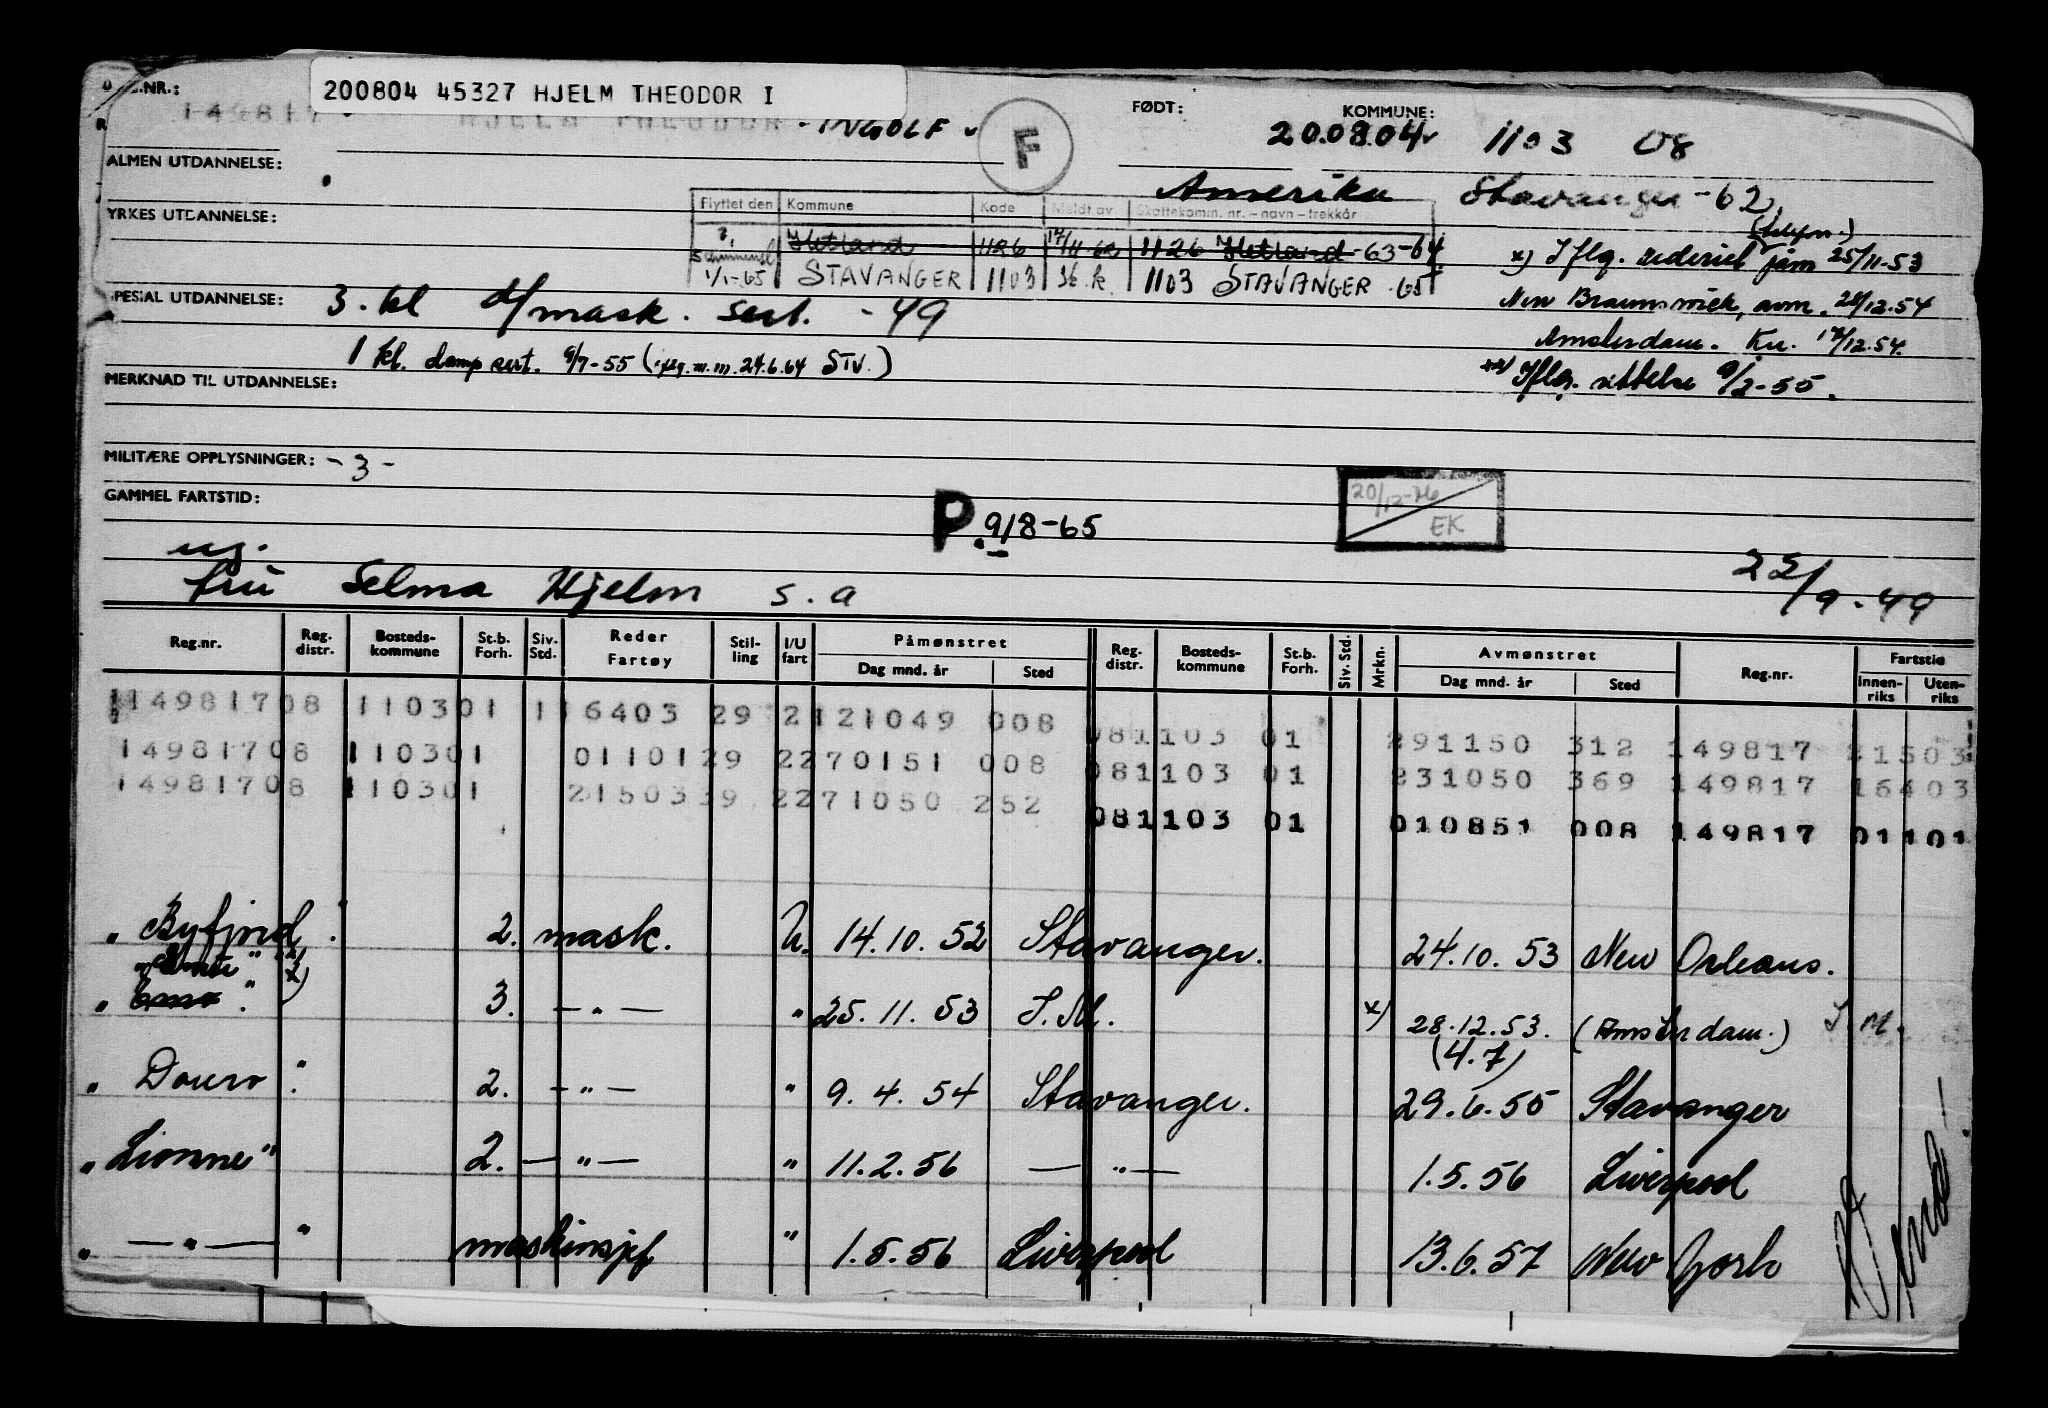 .NR.:
200804 45327 HJELM THEODOR I
149817
- INGOLF
F
FØDT:
KOMMUNE:
20.08.04 1103 08
ALMEN UTDANNELSE:
Amerika Stavanger -62
YRKES UTDANNELSE:
Flyttet den Kommune Kode Meldt av Skattekomm. nr. – navn – trekkår
Hetland 1126 17/11-62 1126 Hetland -63-64
1/1-65 STAVANGER 1103 Sk.k. 1103 STAVANGER -65
(telefon.)
x) Iflg. rederiet 25/11-53
New Braunswick, avm. 28/12.54
Amsterdam. Ku. 17/12.54.
xx) Iflg. rettelse 9/2-55.
SPESIAL UTDANNELSE:
3. kl d/mask. sert. -49
1 kl. damp sert. 9/7-55 (iflg. m.m. 24.6.64 STV.)
MERKNAD TIL UTDANNELSE:
MILITÆRE OPPLYSNINGER: -3-
GAMMEL FARTSTID:
P. 9/8-65
20/12-76
EK
ug.
fru Selma Hjelm s.a
22/9-49
Reg.nr. Reg. distr. Bosteds- kommune St.b. Forh. Siv. Std. Reder Fartøy Stil- ling I/U fart Påmønstret Dag mnd. år Sted Reg. distr. Bosteds- kommune St.b. Forh. Siv. Std. Mrkn. Avmønstret Dag mnd. år Sted Reg.nr. Fartstid Innen- riks Uten- riks
14981708 110301 116403 29 2 121049 008
081103 01 291150 312 149817 21503
14981708 110301 0110129 2270151 008
081103 01 231050 369 149817 16403
14981708 110301 2150339 2271050 252
081103 01 010851 008 149817 01101
"Byfjord" 2. mask. U. 14.10.52 Stavanger. 24.10.53 New Orleans.
x)
3. — " — " 25.11.53 I.M. x) 28.12.53. (Amsterdam.) I M.
(4.7)
"Douro" 2. — " — " 9.4.54 Stavanger. 29.6.55 Stavanger
"Lionne" 2. — " — " 11.2.56 — " — 1.5.56 Liverpool
" — " — " maskinsjef " 1.5.56 Liverpool 13.6.57 New York